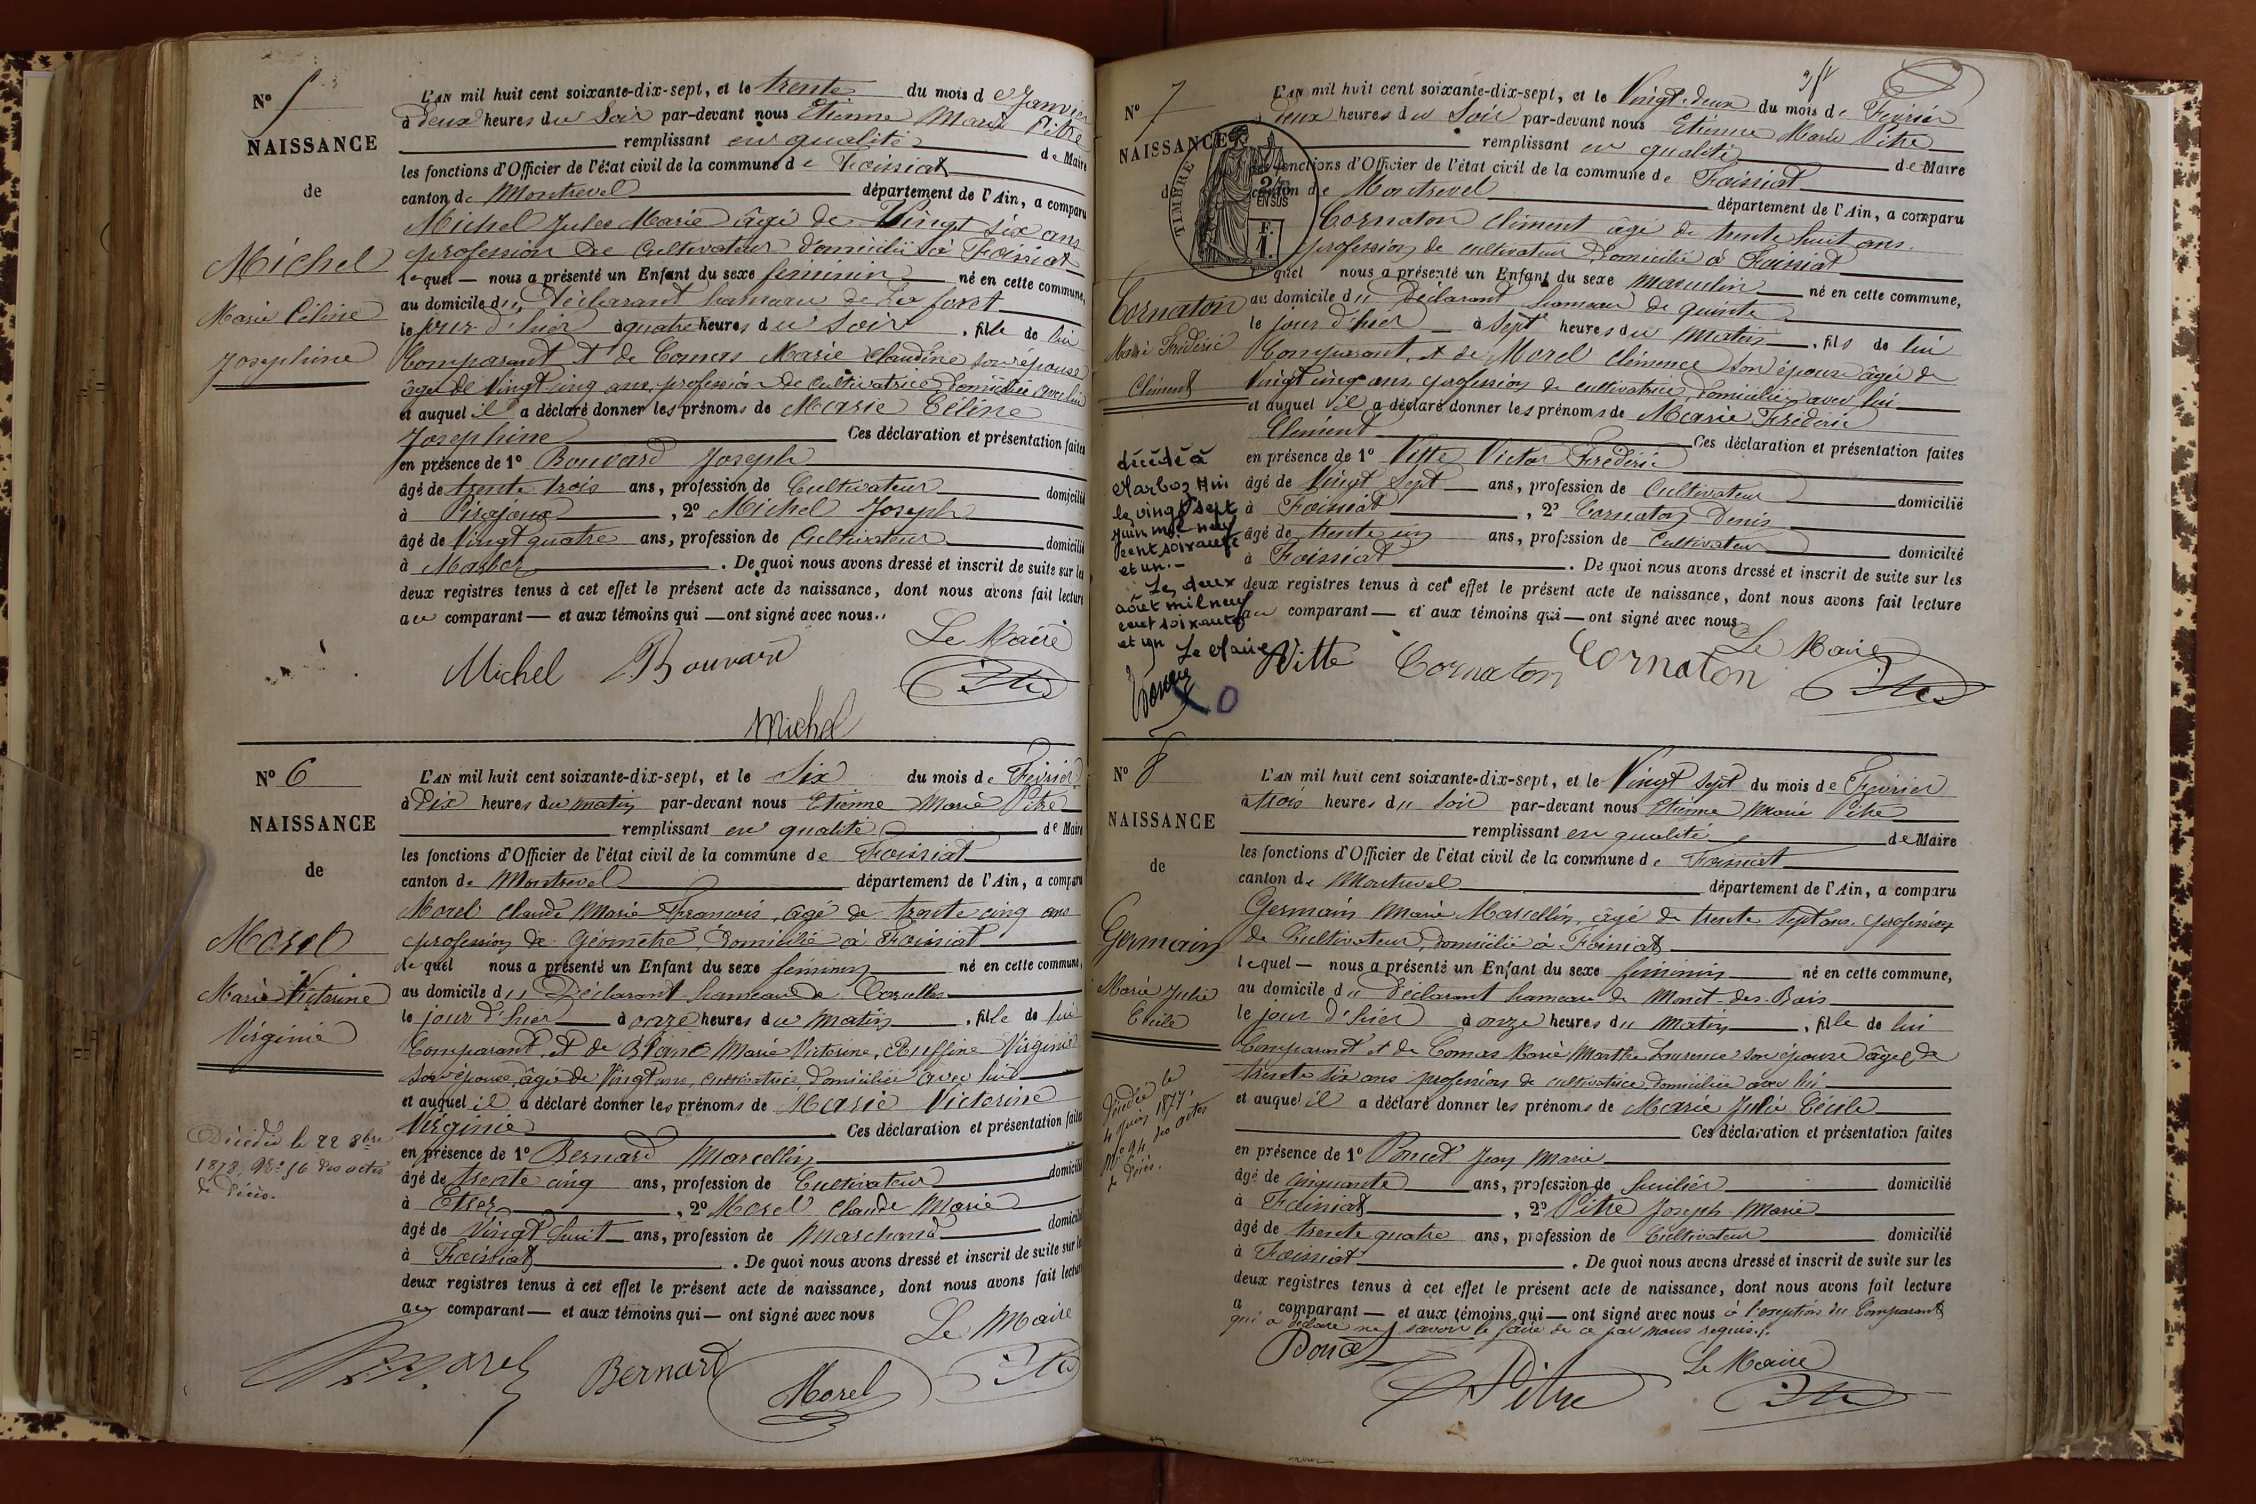 N° 5
NAISSANCE
de
Michel
Marie Céline
Joséphine
L'AN mil huit cent soixante-dix-sept, et le trente du mois de Janvier
à deux heures du Soir par-devant nous Etienne Marie Pitre
remplissant en qualité de Maire
les fonctions d'Officier de l'état civil de la commune de Foissiat
canton de Montrevel département de l'Ain, a comparu
Michel Jules Marie âgé de Vingt Six ans
profession de Cultivateur domicilié à Foissiat
lequel nous a présenté un Enfant du sexe féminin né en cette commune,
au domicile du Déclarant hameau de La forêt
le jour d'hier à quatre heures du Soir, fille de lui
Comparant et de Comas Marie Claudine son épouse
âgée de Vingt cinq ans, profession de Cultivatrice domiciliée avec lui
et auquel il a déclaré donner les prénoms de Marie Céline
Joséphine Ces déclaration et présentation faites
en présence de 1° Bouvard Joseph
âgé de trente trois ans, profession de Cultivateur domicilié
à Pirajoux, 2° Michel Joseph
âgé de Vingt quatre ans, profession de Cultivateur domicilié
à Marboz. De quoi nous avons dressé et inscrit de suite sur les
deux registres tenus à cet effet le présent acte de naissance, dont nous avons fait lecture
au comparant et aux témoins qui ont signé avec nous.
Le Maire
Michel Bouvard Pitre
Michel
N° 6
NAISSANCE
de
Morel
Marie Victorine
Virginie
Décédée le 22 8bre
1878, N° 56 des actes
de Décès.
L'AN mil huit cent soixante-dix-sept, et le Six du mois de Février
à Dix heures du matin par-devant nous Etienne Marie Pitre
remplissant en qualité de Maire
les fonctions d'Officier de l'état civil de la commune de Foissiat
canton de Montrevel département de l'Ain, a comparu
Morel Claude Marie François, âgé de trente cinq ans
profession de géomètre, domicilié à Foissiat
lequel nous a présenté un Enfant du sexe féminin né en cette commune,
au domicile du Déclarant hameau de Corcelles
le jour d'hier à onze heures du Matin, fille de lui
Comparant et de Blanc Marie Victorine, Ruffine Virginie
son épouse, âgée de Vingt ans, cultivatrice domiciliée avec lui
et auquel il a déclaré donner les prénoms de Marie Victorine
Virginie Ces déclaration et présentation faites
en présence de 1° Bernard Marcellin
âgé de trente cinq ans, profession de Cultivateur domicilié
à Etrez, 2° Morel Claude Marie
âgé de Vingt huit ans, profession de Marchand domicilié
à Foissiat. De quoi nous avons dressé et inscrit de suite sur les
deux registres tenus à cet effet le présent acte de naissance, dont nous avons fait lecture
au comparant et aux témoins qui ont signé avec nous
Le Maire
Morel Bernard Morel Pitre
N° 7
NAISSANCE
de
TIMBRE
2/10 EN SUS
F. 1.
Cornaton
Marie Frédéric
Clément
décédé à
Marboz Ain
le vingt sept
juin mil neuf
cent soixante
et un.-
Le deux
août mil neuf
cent soixante
et un Le Maire
L'AN mil huit cent soixante-dix-sept, et le Vingt-deux du mois de Février
deux heures du Soir par-devant nous Etienne Marie Pitre
remplissant en qualité de Maire
les fonctions d'Officier de l'état civil de la commune de Foissiat
canton de Montrevel département de l'Ain, a comparu
Cornaton Clément âgé de trente huit ans.
profession de cultivateur domicilié à Foissiat
lequel nous a présenté un Enfant du sexe masculin né en cette commune,
au domicile du Déclarant hameau de quinte
le jour d'hier à Sept heures du Matin, fils de lui
Comparant, et de Morel Clémence son épouse âgée de
Vingt cinq ans, profession de cultivatrice, domiciliée avec lui
et auquel il a déclaré donner les prénoms de Marie Frédéric
Clément Ces déclaration et présentation faites
en présence de 1° Vitte Victor Frédéric
âgé de Vingt Sept ans, profession de Cultivateur domicilié
à Foissiat, 2° Cornaton Denis
âgé de trente un ans, profession de Cultivateur domicilié
à Foissiat. De quoi nous avons dressé et inscrit de suite sur les
deux registres tenus à cet effet le présent acte de naissance, dont nous avons fait lecture
au comparant et aux témoins qui ont signé avec nous
Le Maire
Vitte Cornaton Cornaton Pitre
N° 8
NAISSANCE
de
Germain
Marie Julie
Cécile
Décédée le
4 juin 1877,
N° 94 des actes
de Décès.
L'AN mil huit cent soixante-dix-sept, et le Vingt Sept du mois de Février
à trois heures du Soir par-devant nous Etienne Marie Pitre
remplissant en qualité de Maire
les fonctions d'Officier de l'état civil de la commune de Foissiat
canton de Montrevel département de l'Ain, a comparu
Germain Marie Marcellin, âgé de trente Sept ans, profession
de Cultivateur, domicilié à Foissiat
lequel nous a présenté un Enfant du sexe féminin né en cette commune,
au domicile du Déclarant hameau de Moret-des-Bois
le jour d'hier à onze heures du Matin, fille de lui
Comparant et de Comas Marie Marthe Laurence son épouse âgée de
trente six ans profession de cultivatrice domiciliée avec lui
et auquel il a déclaré donner les prénoms de Marie Julie Cécile
Ces déclaration et présentation faites
en présence de 1° Poncet Jean Marie
âgé de cinquante ans, profession de huilier domicilié
à Foissiat, 2° Pitre Joseph Marie
âgé de trente quatre ans, profession de Cultivateur domicilié
à Foissiat. De quoi nous avons dressé et inscrit de suite sur les
deux registres tenus à cet effet le présent acte de naissance, dont nous avons fait lecture
a comparant et aux témoins qui ont signé avec nous à l'exception du Comparant
qui a déclaré ne savoir le faire de ce par nous requis.
Poncet Pitre Le Maire
Pitre